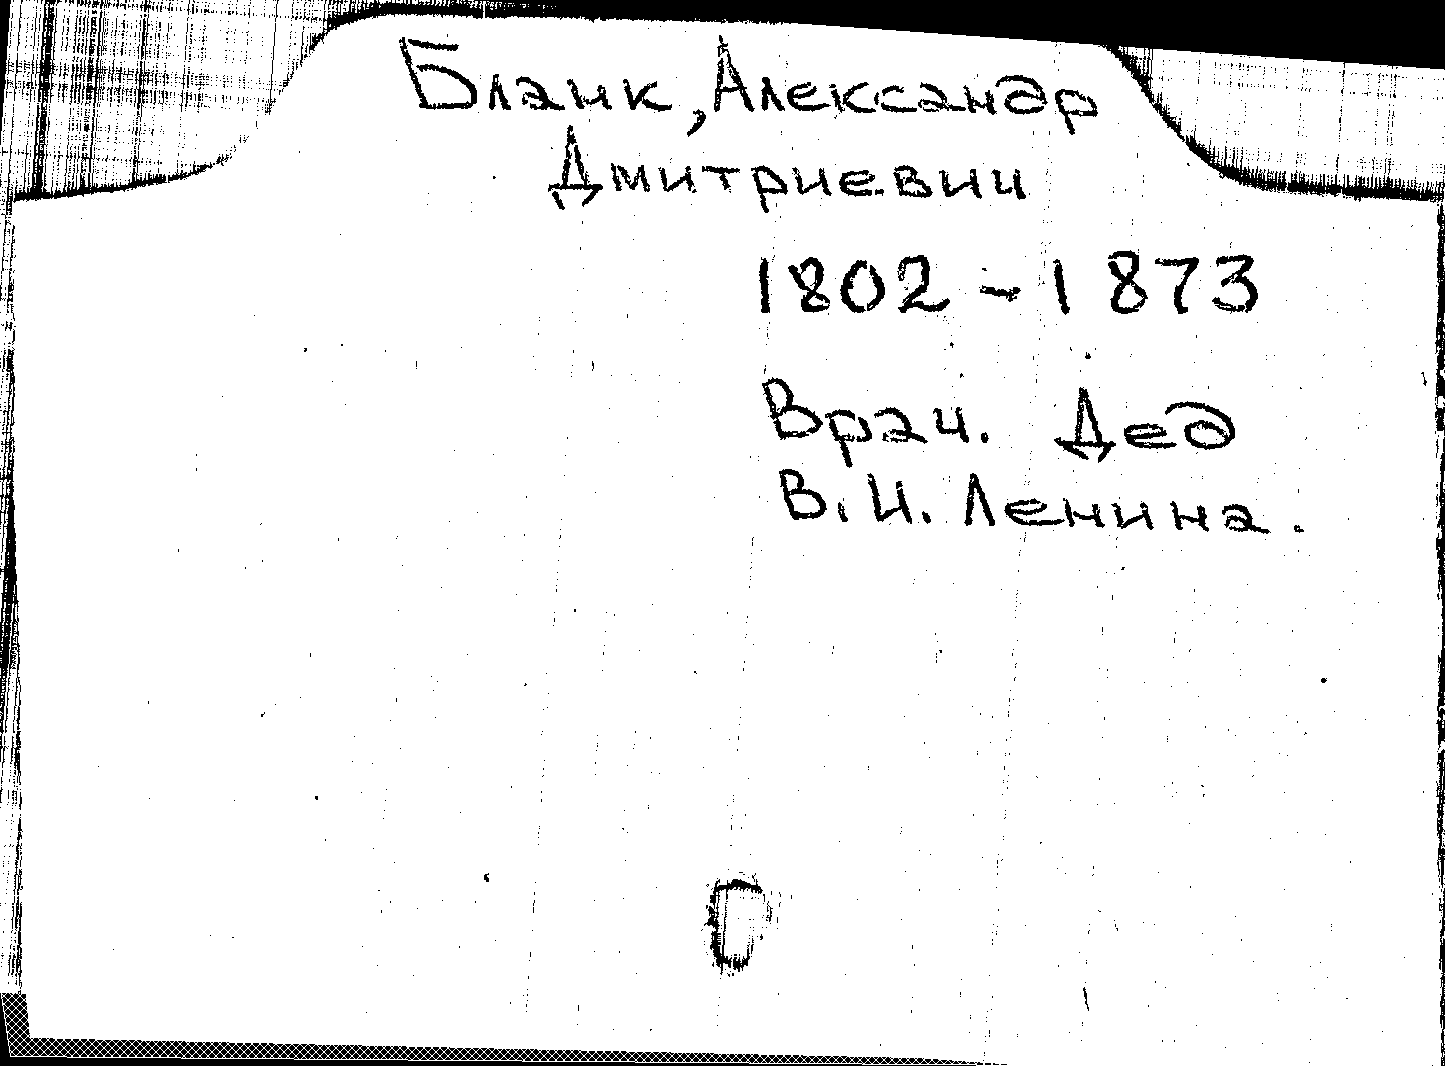 Бланк, Александр
Дмитриевич
1802 - 1873
Врач. Дед
В. И. Ленина.